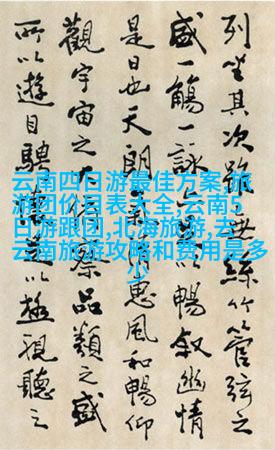 列坐其次雖無絲竹管弦之
盛一觴一詠以暢叙幽情
是日也天朗惠風和暢仰
觀宇宙之大品類之盛
所以遊目騁以極視聽之
云南四日游最佳方案,旅
游团价目表大全,云南5
日游跟团,北海旅游,云
云南旅游攻略和费用是多
少